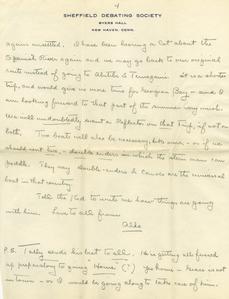 4
SHEFFIELD DEBATING SOCIETY
BYERS HALL
NEW HAVEN, CONN.
again unsettled. I have been hearing a lot about the
Spanish River again and we may go back to our original
route instead of going to Abitibi & Timagami. It is a shorter
trip, and would give us more time for Georgian Bay - and I
am looking forward to that part of the summer very much.
We will undoubtedly want a Reflector on that trip, if not on
both. Two boats will also be necessary, bits once - or if we
should rent two, - double enders in which the stern man can
paddle. They say double-enders & canoes are the universal
boat in that country.
Tell the Kid to write me how things are going
with him. Love to all from
Aldo
P.S. sends his best to all. He is getting all fussed
up preparatory to going "Home" (?) yes home - is not
in town - or I would be going along to take care of him.